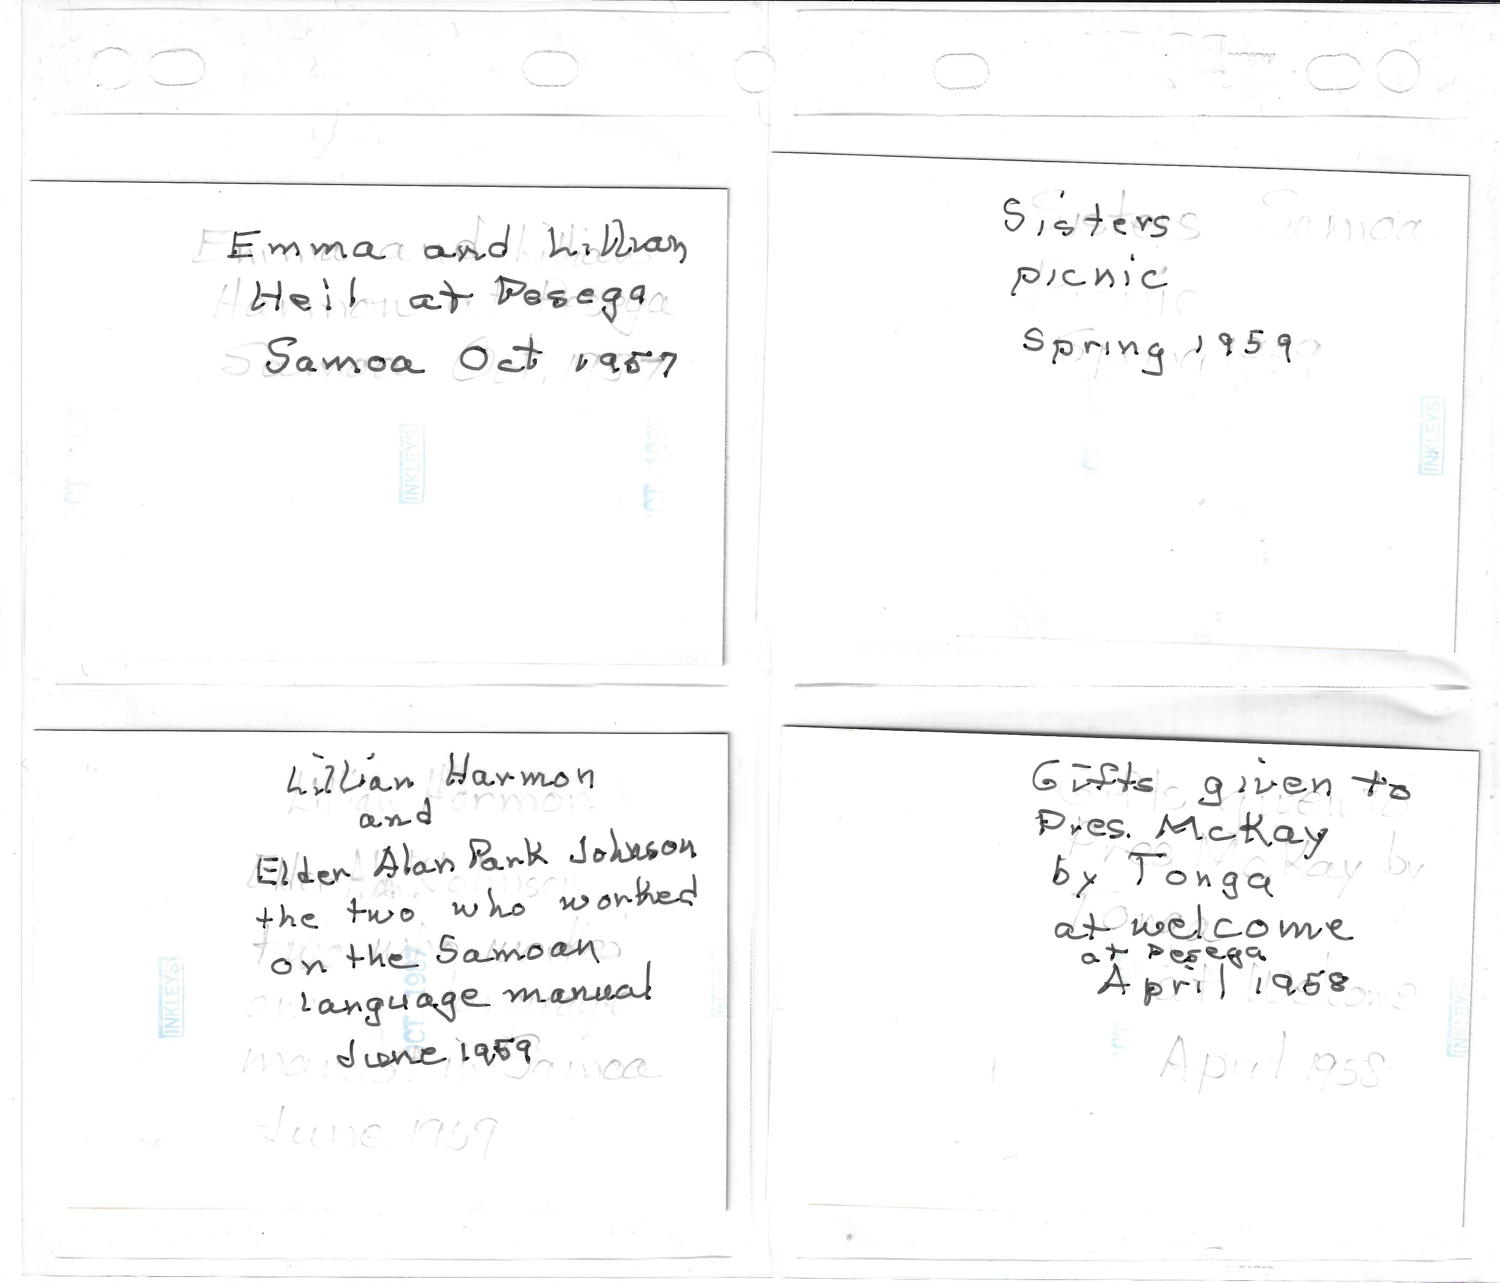 Emma and Lillian
Heil at Pesega
Samoa Oct 1957
INKLEYS
Sisters
picnic
Spring 1959
Samoa
INKLEYS
Lillian Harmon
and
Elder Alan Park Johnson
the two who worked
on the Samoan
language manual
June 1959
INKLEYS
OCT 1997
June 1959
Gifts given to
Pres. McKay
by Tonga
at welcome
at Pesega
April 1958
April 1958
INKLEYS